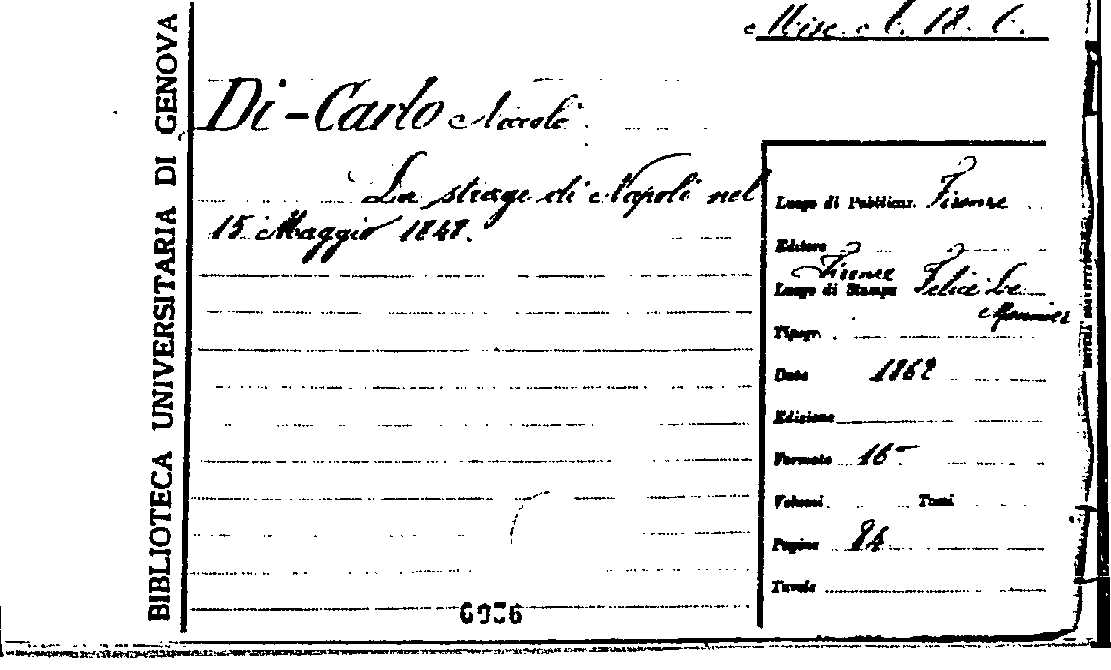 BIBLIOTECA UNIVERSITARIA DI GENOVA
Misc. A. 18. 6.
Di-Carlo Niccolò
La strage di Napoli nel
15 Maggio 1848.
Luogo di Pubblicaz. Firenze
Editore
Firenze
Luogo di Stampa Felice Le
Monnier
Tipogr.
Data 1862
Edizione
Formato 16°
Volumi Tomi
Pagine 84
Tavole